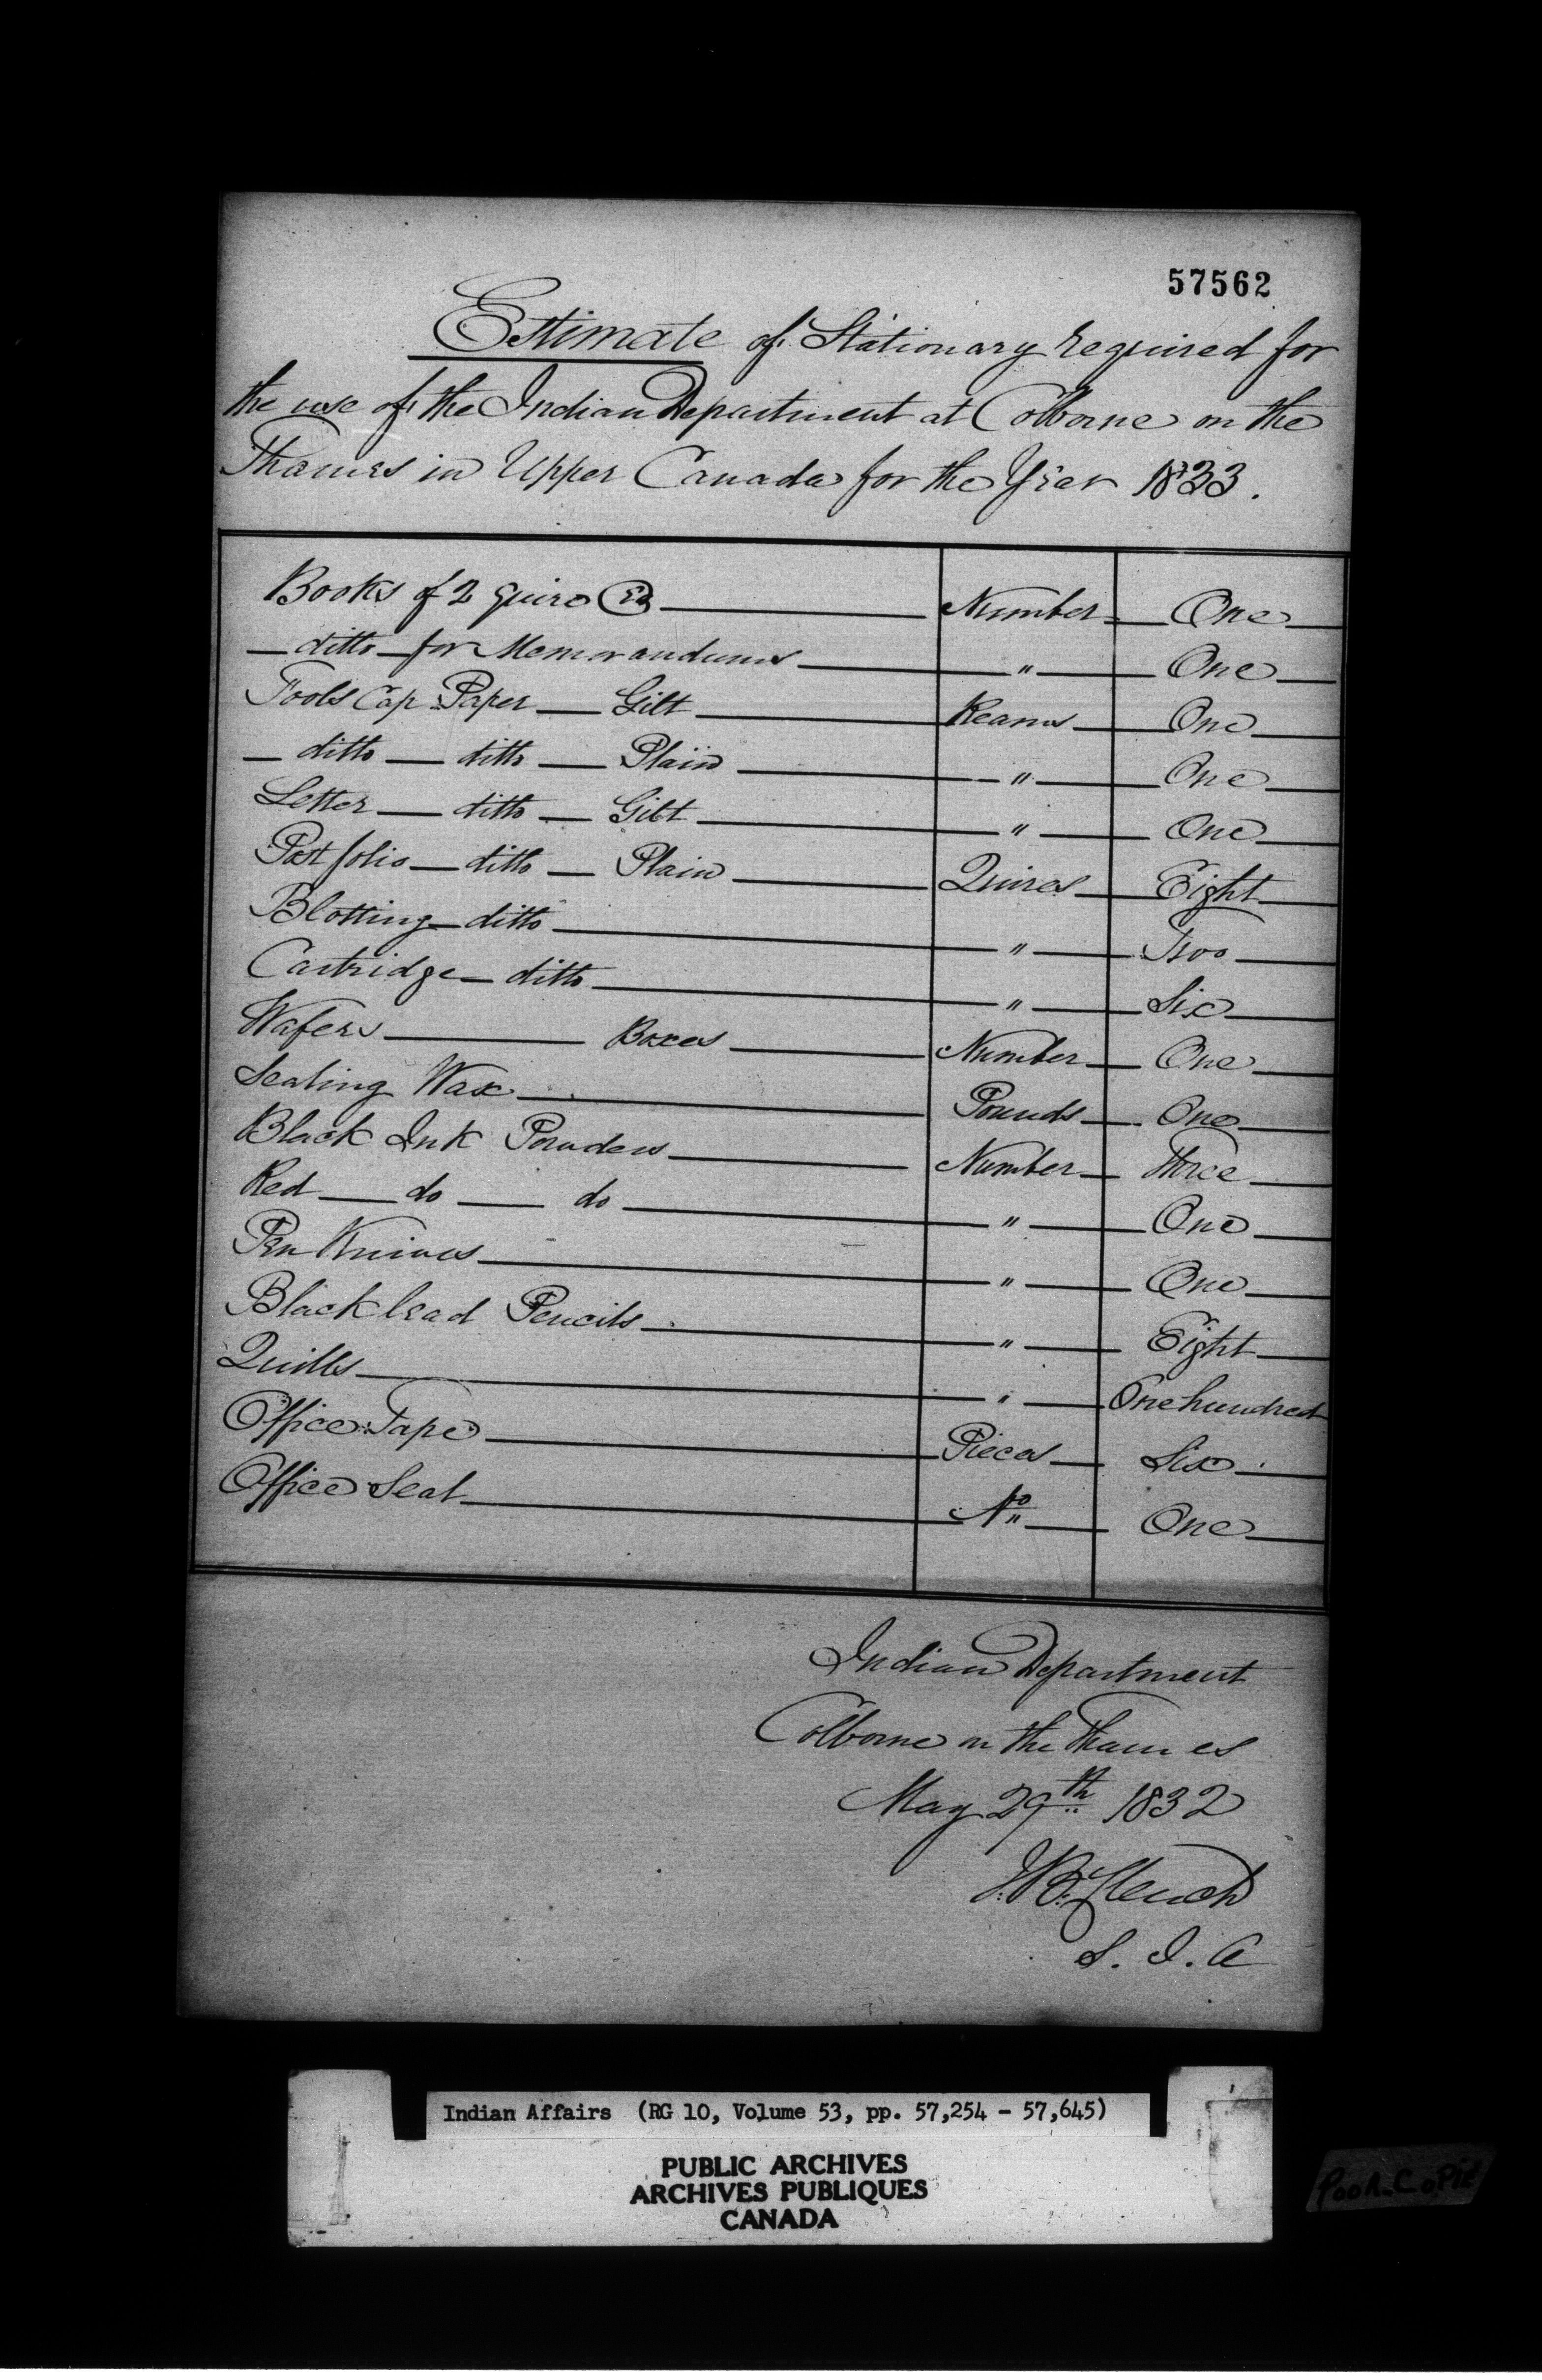 57562
Estimate of Stationary required for
the use of the Indian Department at Colborne on the
Thames in Upper Canada for the Year 1833.
Books of 2 quire Number One
ditto for Memorandums " One
Fools Cap Paper Gilt Reams One
ditto ditto Plain " One
Letter ditto Gilt " One
Post folio ditto Plain Quires Eight
Blotting ditto " Two
Cartridge ditto " Six
Wafers Boxes Number One
Sealing Wax Pounds One
Black Ink Powders Number Three
Red do do " One
Pen Knives " One
Black lead Pencils " Eight
Quills " One hundred
Office Tape Pieces Six
Office Seal No One
Indian Department
Colborne on the Thames
May 29th 1832
J. B. Clench
S. I. A
Indian Affairs (RG 10, Volume 53, pp. 57,254 - 57,645)
PUBLIC ARCHIVES
ARCHIVES PUBLIQUES
CANADA
Poor Copie